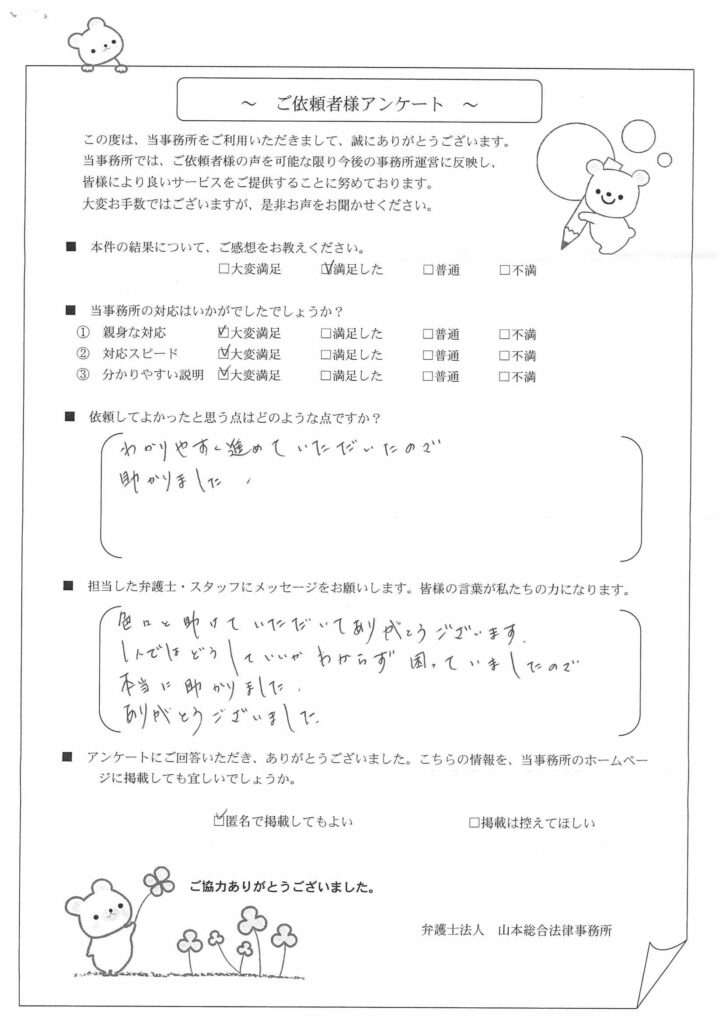 ～ ご依頼者様アンケート ～
この度は、当事務所をご利用いただきまして、誠にありがとうございます。
当事務所では、ご依頼者様の声を可能な限り今後の事務所運営に反映し、
皆様により良いサービスをご提供することに努めております。
大変お手数ではございますが、是非お声をお聞かせください。
■ 本件の結果について、ご感想をお教えください。
□大変満足 ☑満足した □普通 □不満
■ 当事務所の対応はいかがでしたでしょうか？
① 親身な対応 ☑大変満足 □満足した □普通 □不満
② 対応スピード ☑大変満足 □満足した □普通 □不満
③ 分かりやすい説明 ☑大変満足 □満足した □普通 □不満
■ 依頼してよかったと思う点はどのような点ですか？
わかりやすく進めていただいたので
助かりました。
■ 担当した弁護士・スタッフにメッセージをお願いします。皆様の言葉が私たちの力になります。
色々と助けていただいてありがとうございます。
1人ではどうしていいかわからず困っていましたので
本当に助かりました。
ありがとうございました。
■ アンケートにご回答いただき、ありがとうございました。こちらの情報を、当事務所のホームペー
ジに掲載しても宜しいでしょうか。
☑匿名で掲載してもよい □掲載は控えてほしい
ご協力ありがとうございました。
弁護士法人 山本総合法律事務所